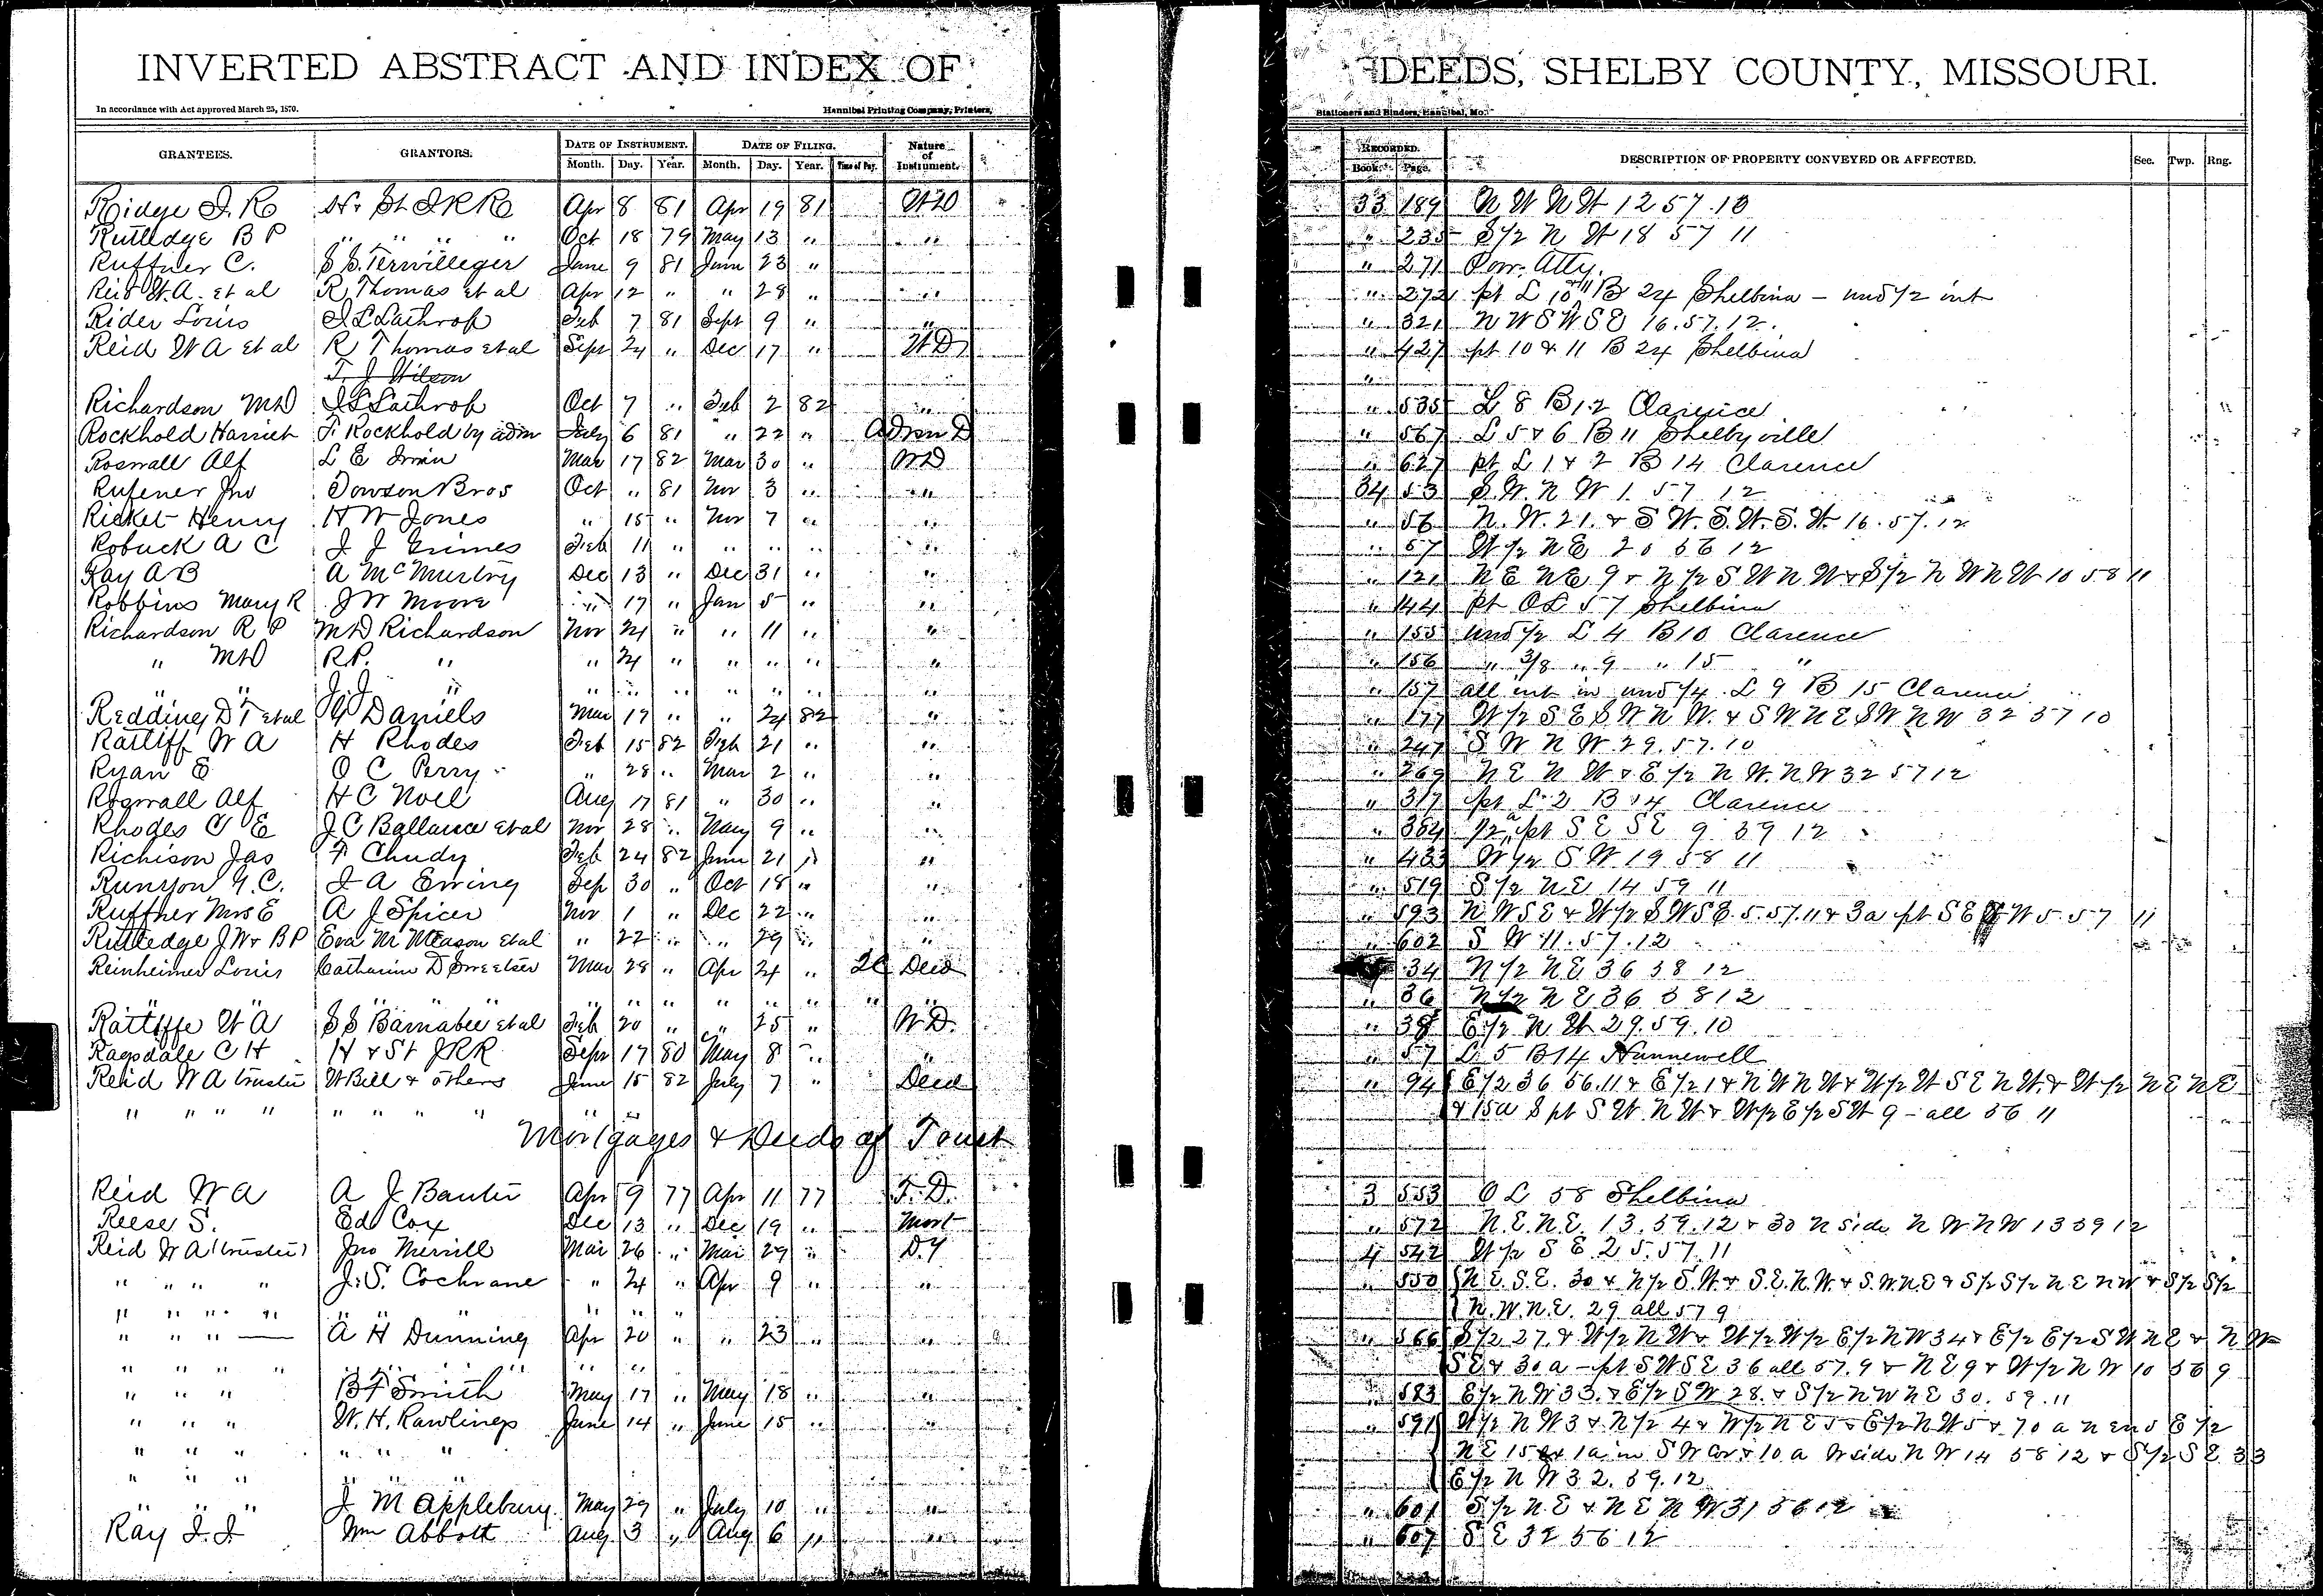 INVERTED ABSTRACT AND INDEX OF DEEDS, SHELBY COUNTY, MISSOURI.
In accordance with Act approved March 25, 1870. Hannibal Printing Company, Printers, Stationers and Binders, Hannibal, Mo.
GRANTEES. GRANTORS. DATE OF INSTRUMENT. Month. Day. Year. DATE OF FILING. Month. Day. Year. Time of Day. Nature of Instrument. RECORDED. Book. Page. DESCRIPTION OF PROPERTY CONVEYED OR AFFECTED. Sec. Twp. Rng.
Ridge J. R H. St J R R Apr 8 81 Apr 19 81 W D 33 189 N W N W 12 57 10
Rutledge B P " " " " Oct 18 79 May 13 " " " 235 S 1/2 N W 18 57 11
Ruffner C. S S. Terwilleger June 9 81 June 23 " " 271 Pow. Atty.
Reid W. A. et al R Thomas et al Apr 12 " " 28 " " " 272 pt L 10 & 11 B 24 Shelbina - und 1/2 int
Rider Louis J L Lathrop Feb 7 81 Sept 9 " " " 321 N W S W S E 16. 57. 12.
Reid W A et al R Thomas et al Sept 24 " Dec 17 " W D " 427 pt 10 & 11 B 24 Shelbina
T. J Wilson "
Richardson M D J L Lathrop Oct 7 " Feb 2 82 " " 535 L 8 B 12 Clarence
Rockhold Harriet F. Rockhold by adm July 6 81 " 22 " Admn D " 567 L 5 & 6 B 11 Shelbyville
Roswall Alf L E Irwin Mar 17 82 Mar 30 " W D " 627 pt L 1 & 2 B 14 Clarence
Rufener Jno Towson Bros Oct " 81 Nov 3 " " 34 53 S. W. N W 1. 57 12
Ricket Henry H W Jones " 15 " Nov 7 " " " 56 N. W. 21. & S W. S. W. S. W. 16. 57. 12
Robuck A C J J Grimes Feb 11 " " " " " " 57 W 1/2 N E 20 56 12
Ray A B A McMurtry Dec 13 " Dec 31 " " " 121 N E N E 9 & N 1/2 S W N W & S 1/2 N W N W 10 58 11
Robbins Mary R J W Moore " 17 " Jan 5 " " " 144 pt O L 57 Shelbina
Richardson R P M D Richardson Nov 24 " " 11 " " " 155 und 1/2 L 4 B 10 Clarence
" M D R P. " " 24 " " " " " " 156 " 3/8 " 9 " 15 "
" " J. J. " " " " " " " " " 157 all int in und 1/4 L 9 B 15 Clarence
Redding D T et al G Daniels Mar 19 " " 24 82 " " 177 W 1/2 S E S W N W. & S W N E S W N W 32 57 10
Ratliff W A H Rhodes Feb 15 82 Feb 21 " " " 247 S W N W 29. 57. 10
Ryan E O C Perry " 28 " Mar 2 " " " 269 N E N W & E 1/2 N W. N W 32 57 12
Roswall Alf H C Noel Aug 17 81 " 30 " " " 317 pt L 2 B 14 Clarence
Rhodes C E J C Ballance et al Nov 28 " May 9 " " " 364 1/2 a pt S E S E 9 59 12
Richison Jas F Chudy Feb 24 82 June 21 " " " 433 W 1/2 S W 19 58 11
Runyon G. C. J A Ewing Sep 30 " Oct 18 " " " 519 S 1/2 N E 14 59 11
Ruffner Mrs E A J Spicer Nov 1 " Dec 22 " " " 593 N W S E & W 1/2 S W S E. 5. 57. 11 & 3 a pt S E W 5. 57 11
Rutledge J W & B P Eva M Meason et al " 22 " " 29 " " " 602 S W 11. 57. 12
Reinheimer Louis Catharine D Sweetser Mar 28 " Apr 24 " 2 C Deed 34 N 1/2 N E 36 58 12
" " " " " " " " " " " " " " " 36 N 1/2 N E 36 58 12
Ratliffe W A S S Barnabee et al Feb 20 " " 25 " W. D. " 38 E 1/2 N W 29. 59. 10
Ragsdale C H H & St J R R Sepr 17 80 May 8 " " " 57 L 5 B 14 Hunnewell
Reid W A trustee W Bell & others June 15 82 July 7 " Deed " 94 E 1/2 36 56. 11 & E 1/2 1 & N W N W & W 1/2 W S E N W. & W 1/2 N E N E
" " " " " " " " " " & 15 a S pt S W N W & W 1/2 E 1/2 S W 9 - all 56 11
Mortgages & Deeds of Trust
Reid W A A J Banter Apr 9 77 Apr 11 77 T. D. 3 553 O L 58 Shelbina
Reese S. Ed Cox Dec 13 " Dec 19 " Mort " 572 N. E. N E. 13. 59. 12 & 30 N side N W N W 13 59 12
Reid W A (trustee) Jno Merrill Mar 26 " Mar 29 " D. T 4 542 W 1/2 S E. 25. 57. 11
" " " " J. S. Cochrane " 24 " Apr 9 " " " 550 N. E. S. E. 30 & N 1/2 S. W. & S. E. N. W. & S. W. N. E & S 1/2 S 1/2 N E N W & S 1/2 S 1/2
" " " " " " " " " " N. W. N. E. 29 all 57 9
" " " — A H Dunning Apr 20 " " 23 " " " 566 S 1/2 27. & W 1/2 N W & W 1/2 W 1/2 E 1/2 N W 34 & E 1/2 E 1/2 S W N E & N W
" " " " " " " " " " S E & 30 a - pt S W S E 36 all 57. 9 & N E 9 & W 1/2 N W 10 56 9
" " " B F Smith May 17 " May 18 " " " 583 E 1/2 N W 33. & E 1/2 S W 28. & S 1/2 N W N E 30. 59. 11
" " " W. H. Rawlings June 14 " June 15 " " " 591 W 1/2 N W 3 & N 1/2 4 & W 1/2 N E 5 & E 1/2 N W 5 & 70 a N end E 1/2
" " " " " " " N E 15 ex 1 a in S W Cor & 10 a W side N W 14 58 12 & S 1/2 S E 33
" " " E 1/2 N W 32. 59. 12
" " " J M Applebury May 29 " July 10 " " " 601 S 1/2 N. E & N E N W 31 56 12
Ray J. J. Wm Abbott Aug 3 " Aug 6 " " " 607 S E 32 56 12